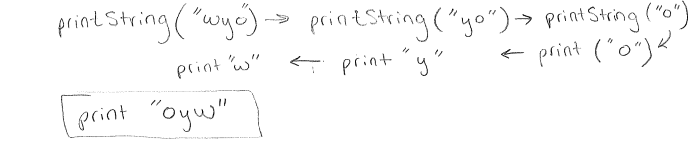 printString("wyo") → printString("yo") → printString("o")
print "w" ← print "y" ← print ("o")
print "oyw"